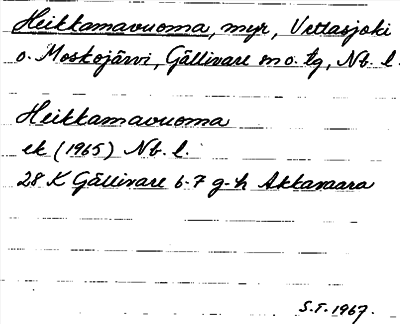 Heikkamavuoma, myr, Vettasjoki
o. Moskojärvi, Gällivare sn o. tg, Nb. l.
Heikkamavuoma
ek (1965) Nb. l.
28 K Gällivare 6-7 g-h Akkavaara
S.F. 1967.